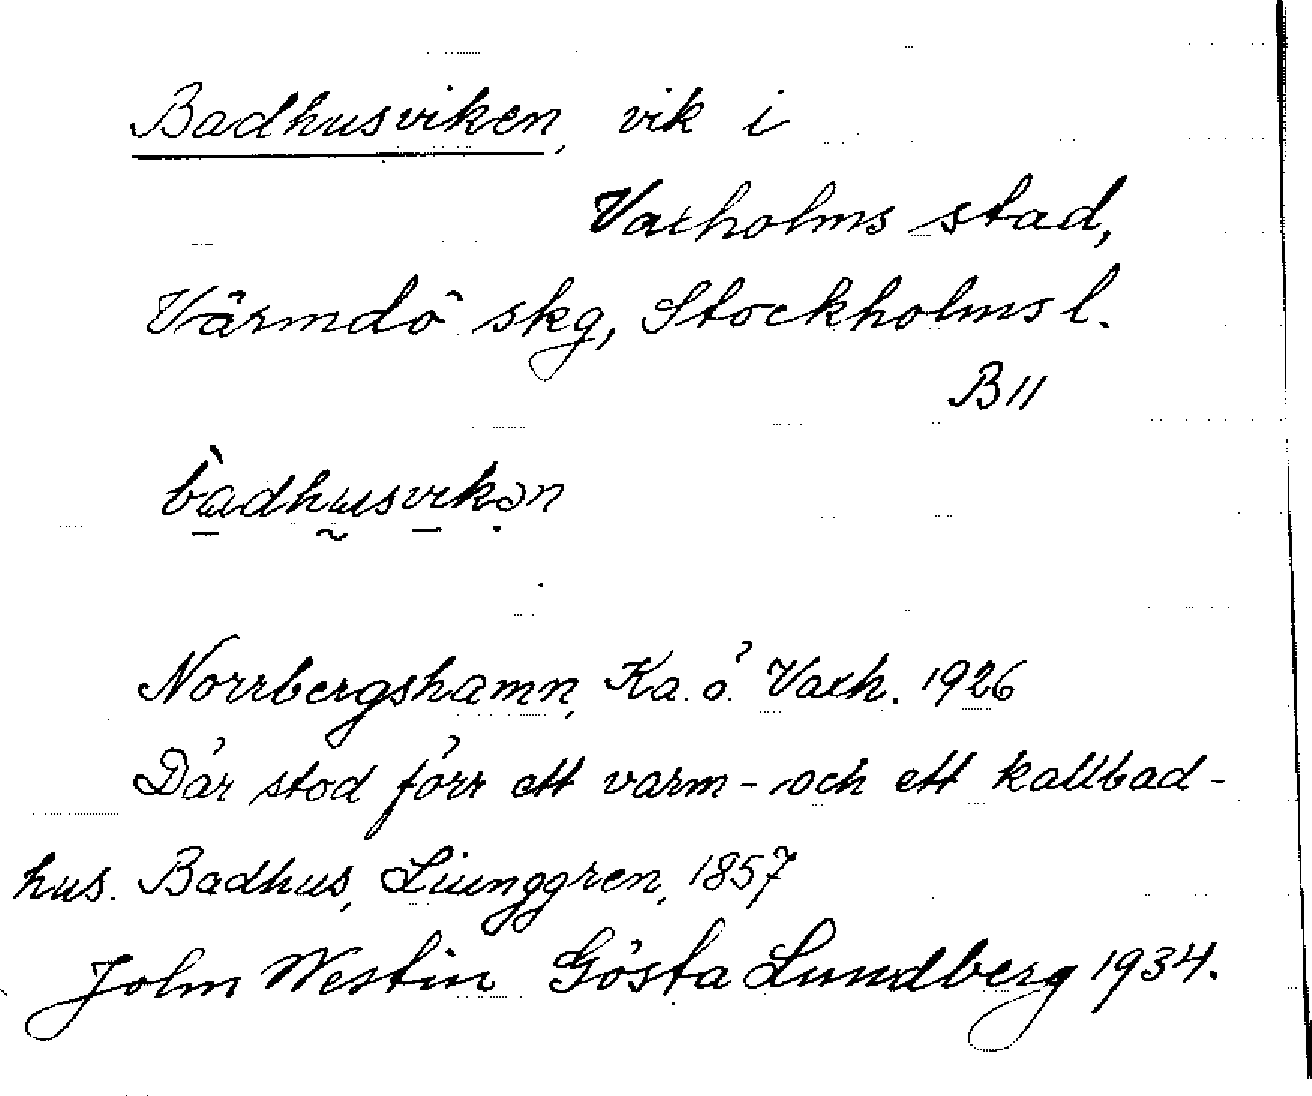 Badhusviken, vik i
Vaxholms stad,
Värmdö skg, Stockholms l.
B 11
bàdhusvikən
Norrbergshamn, Ka. ö. Vaxh. 1926
Där stod förr ett varm- och ett kallbad-
hus. Badhus, Ljunggren, 1857
John Westin Gösta Lundberg 1934.